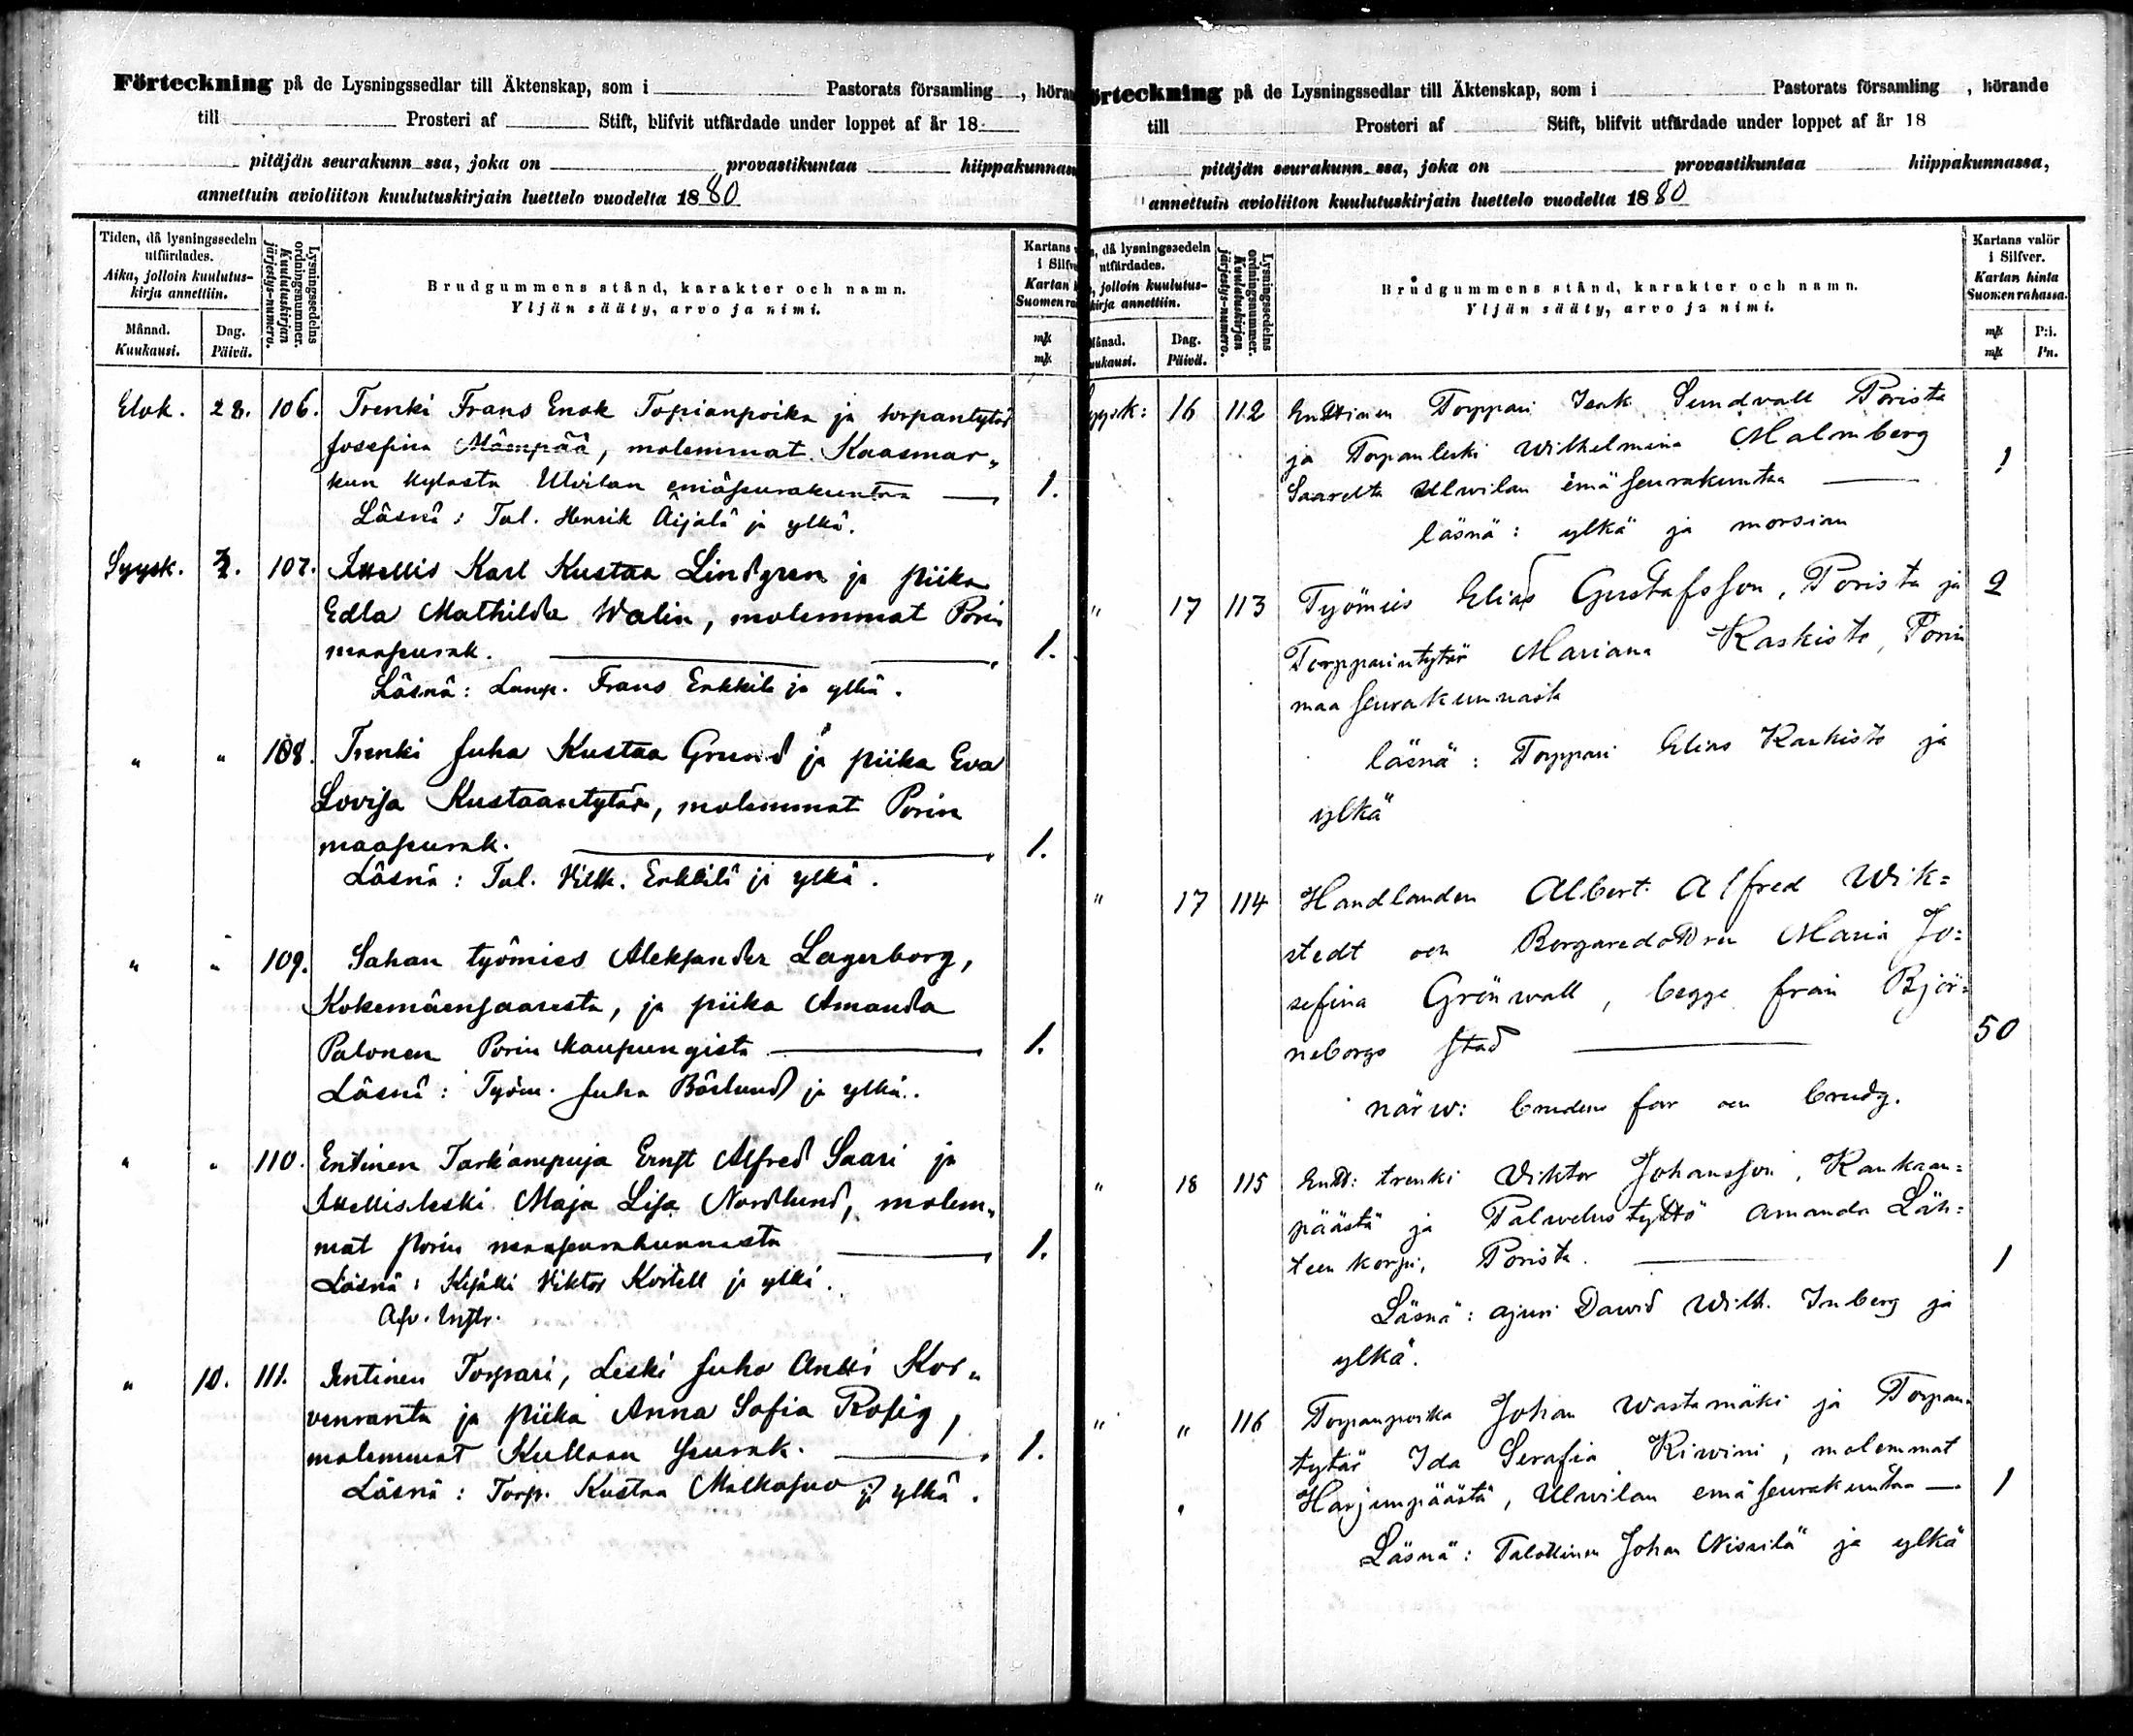 Förteckning på de Lysningssedlar till Äktenskap, som i Pastorats församling, höran
till Prosteri af Stift, blifvit utfärdade under loppet af år 18
pitäjän seurakunn ssa, joka on provastikuntaa hiippakunnas
annettuin avioliiton kuulutuskirjain luettelo vuodelta 1880
Tiden, då lysningssedeln utfärdades.
Aika, jolloin kuulutus-
kirja annettiin.
Månad. Kuukausi.
Dag. Päivä.
Lysningssedelns ordningsnummer.
Kuulutuskirjan järjestys-numero.
Brudgummens stånd, karakter och namn.
Yljän sääty, arvo ja nimi.
Kartans v
i Silfve
Kartan
Suomen ra
mk
mk
Elok. 28. 106. Trenki Frans Enok Topianpoika ja torpantytär
Josefina Mämpää, molemmat Kaasmar„
kun kylästä Ulvilan emäseurakuntaa — 1.
Läsnä: Tal. Henrik Äijälä ja ylkä.
Syysk. 2. 107. Itsellis Karl Kustaa Lindgren ja piika
Edla Mathilda Walin, molemmat Porin
maaseurak. — 1.
Läsnä: Lamp. Frans Erkkilä ja ylkä.
" " 108. Trenki Juha Kustaa Grund ja piika Eva
Lovisa Kustaantytär, molemmat Porin
maaseurak. — 1.
Läsnä: Tal. Vilh. Erkkilä ja ylkä.
" " 109. Sahan työmies Aleksander Lagerborg,
Kokemäensaaresta, ja piika Amanda
Palonen Porin kaupungista — 1.
Läsnä: Työm. Juha Bärlund ja ylkä.
" " 110. Entinen Tark'ampuja Ernst Alfred Saari ja
Itsellisleski Maja Lisa Nordlund, molem„
mat Porin maaseurakunnasta — 1.
Läsnä: Kisälli Viktor Kortell ja ylkä.
" 10. 111. Entinen Torpari, Leski Juho Antti Kor„
venranta ja piika Anna Sofia Rosig,
molemmat Kullaan seurak. — 1.
Läsnä: Torp. Kustaa Malkasuo ja ylkä.
örteckning på de Lysningssedlar till Äktenskap, som i Pastorats församling, hörande
till Prosteri af Stift, blifvit utfärdade under loppet af år 18
pitäjän seurakunn ssa, joka on provastikuntaa hiippakunnassa,
annettuin avioliiton kuulutuskirjain luettelo vuodelta 1880
, då lysningssedeln utfärdades.
, jolloin kuulutus-
kirja annettiin.
Månad. uukausi.
Dag. Päivä.
Lysningssedelns ordningsnummer.
Kuulutuskirjan järjestys-numero.
Brudgummens stånd, karakter och namn.
Yljän sääty, arvo ja nimi.
Kartans valör
i Silfver.
Kartan hinta
Suomen rahassa.
mk P:i.
mk Pn.
yysk: 16 112 Enttinen Torppari Isak Sundvall Porista
ja Torpanleski Wilhelmina Malmberg
Saarelta Ulwilan emä seurakuntaa — 1
läsnä: ylkä ja morsian
" 17 113 Työmies Elias Gustafsson, Porista ja 2
Torpparintytär Mariana Kaskisto, Porin
maa seurakunnasta
läsnä: Torppari Elias Kaskisto ja
ylkä
" 17 114 Handlanden Albert Alfred Wik=
stedt och Borgaredottren Maria Jo=
sefina Grönwall, begge från Björ=
neborgs stad — 50
närw: brudens far och brudg.
" 18 115 Entt: trenki Viktor Johansson, Kankaan=
päästä ja Palwelustyttö Amanda Läh=
teenkorpi, Porista. — 1
Läsnä: ajuri Dawid Wilh. Inberg ja
ylkä.
" " 116 Torpanpoika Johan Wastamäki ja Torpan=
tytär Ida Serafia Kiwini, molemmat
Harjunpäästä, Ulwilan emä seurakuntaa — 1
Läsnä: Talollinen Johan Nissilä ja ylkä